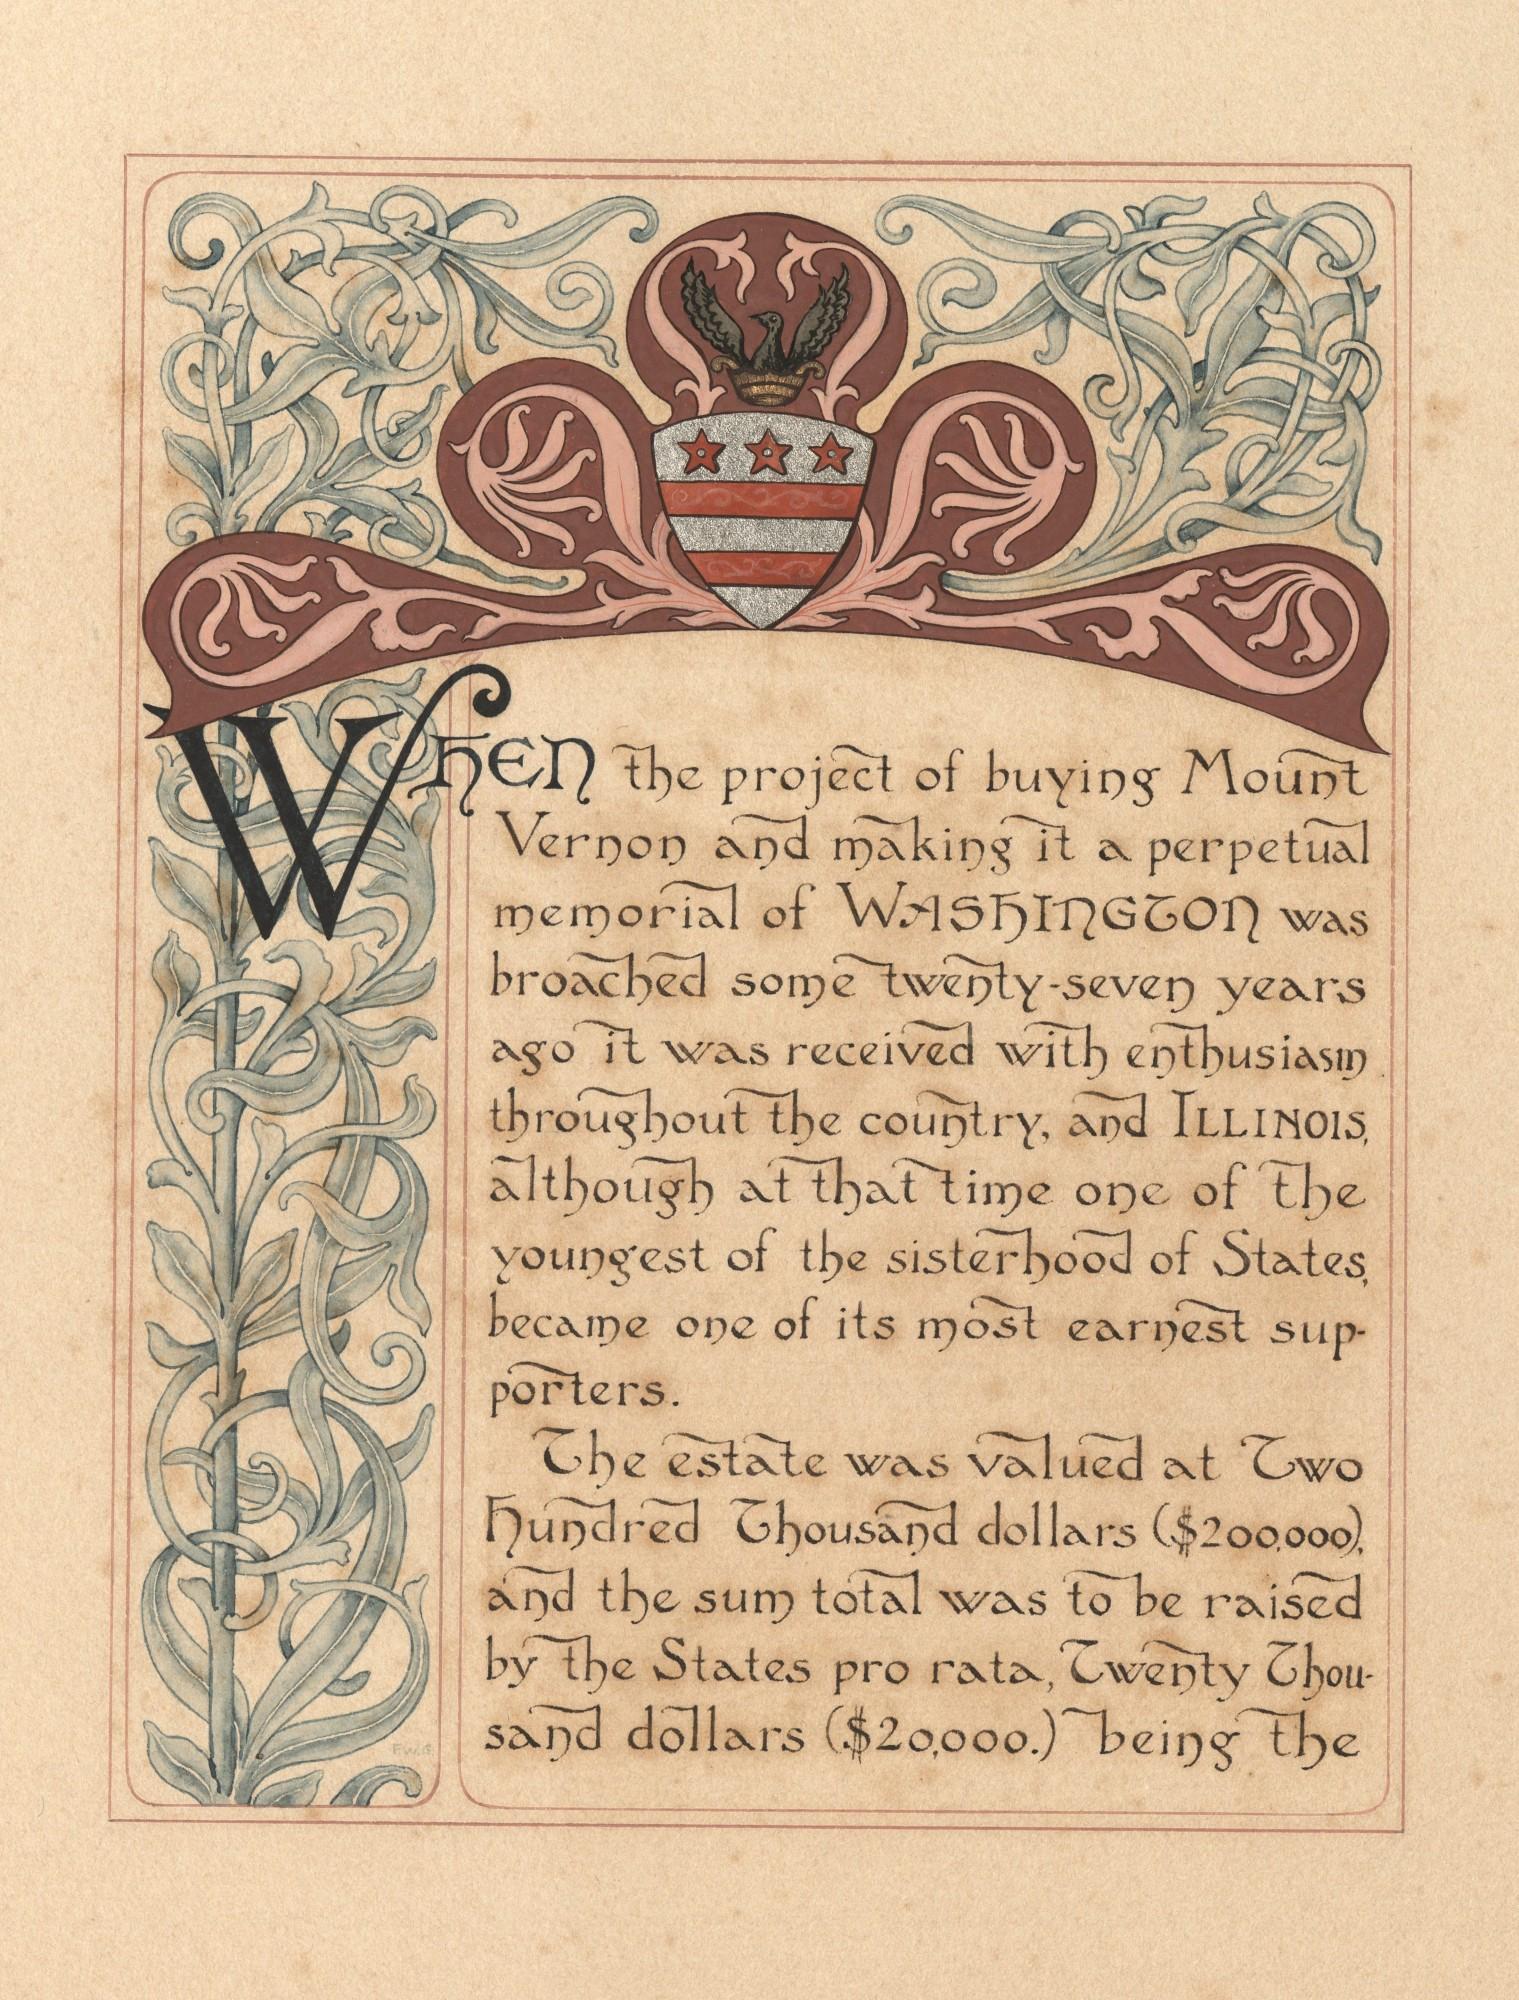 WHEN the project of buying Mount
Vernon and making it a perpetual
memorial of WASHINGTON was
broached some twenty-seven years
ago it was received with enthusiasm
throughout the country, and ILLINOIS,
although at that time one of the
youngest of the sisterhood of States,
became one of its most earnest sup-
porters.
The estate was valued at Two
Hundred Thousand dollars ($200,000),
and the sum total was to be raised
by the States pro rata, Twenty Thou-
sand dollars ($20,000.) being the
F.W.G.